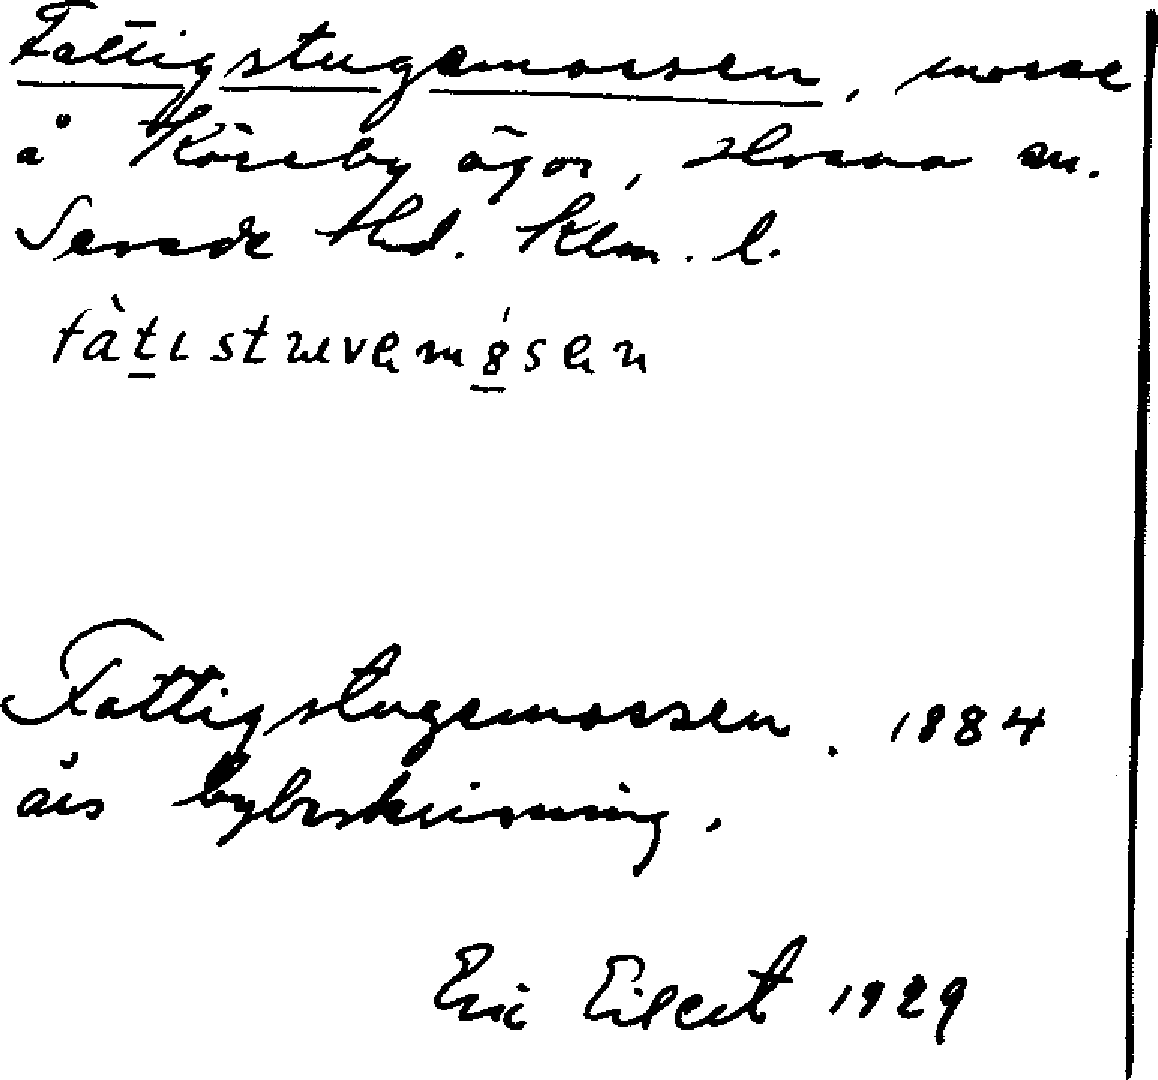 Fattigstugemossen, mosse
å ägor, Hvena sn.
Sevede Hd. Klm. l.
fàtıstuvəmósən
Fattigstugemossen. 1884
års bybeskrivning.
Eric Eilert 1929